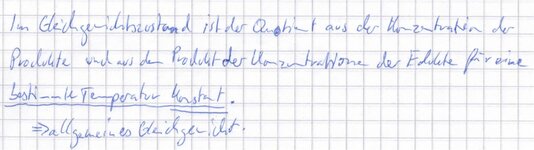 Im Gleichgewichtszustand ist der Quotient aus der Konzentration der
Produkte und aus dem Produkt der Konzentrationen der Edukte für eine
bestimmte Temperatur konstant.
⇒ allgemeines Gleichgewicht.